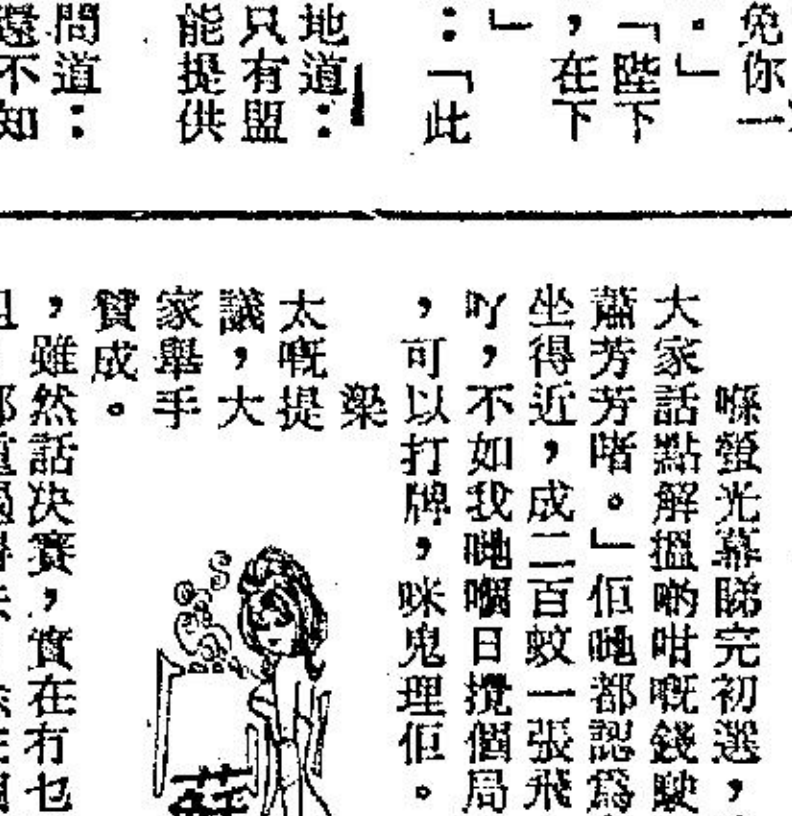 免你一
。」
「陛下
，在下
」
：「此
地道：
只有盟
能提供
問道：
還不知
喺螢光幕睇完初選，
大家話點解搵啲咁嘅錢駛
蕭芳芳啫。」佢哋都認爲
坐得近，成二百蚊一張飛
吖，不如我哋嗰日攪個局
，可以打牌，咪鬼理佢。
梁
太嘅提
議，大
家舉手
贊成。
，雖然話决賽，實在冇乜